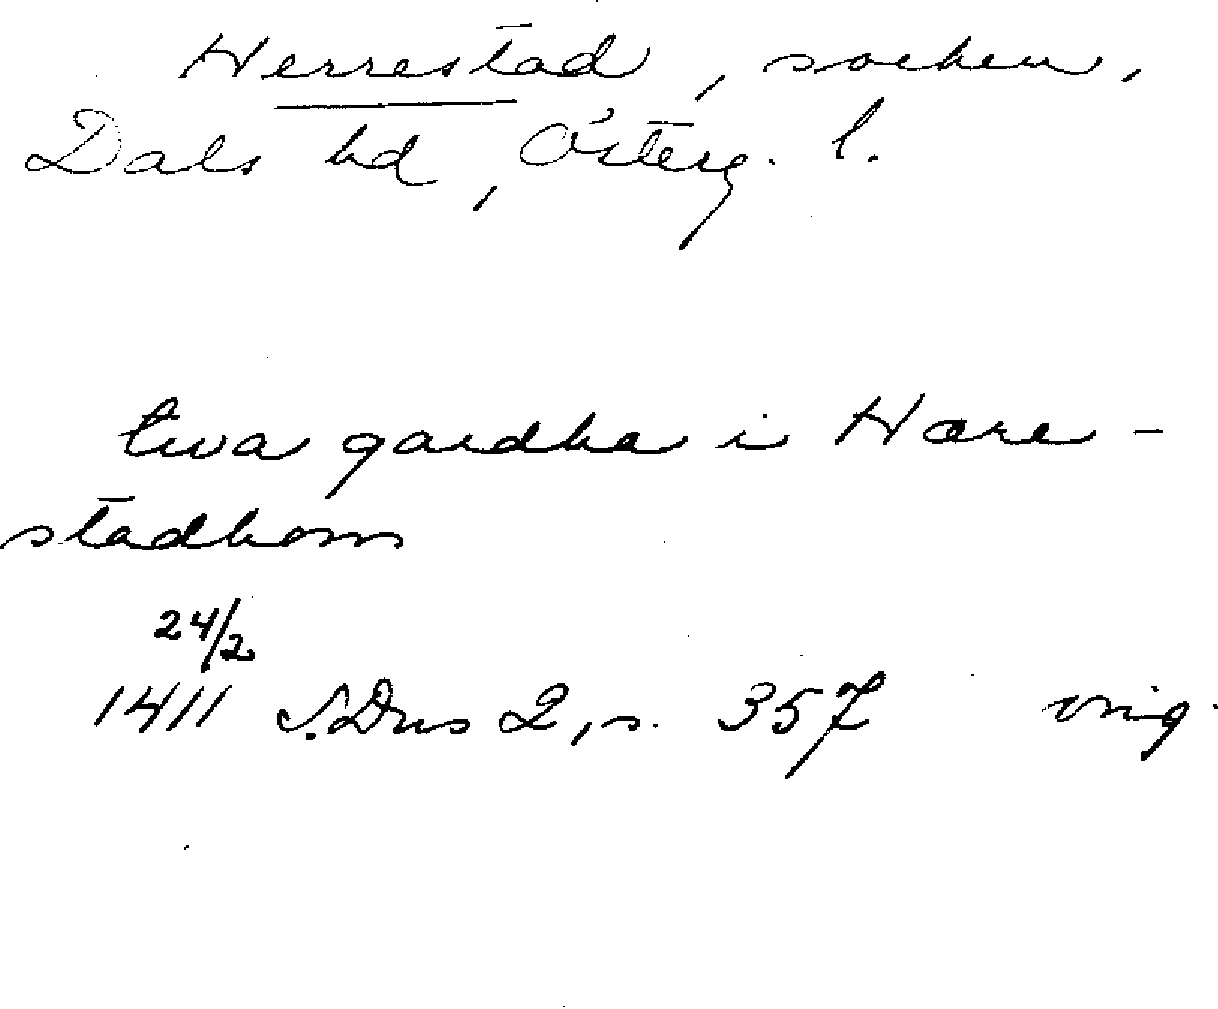 Herrestad, socken,
Dals hd, Österg. l.
twa gardha i Hære-
stadhom
24/2
1411 S.Dns 2, s. 357 orig.